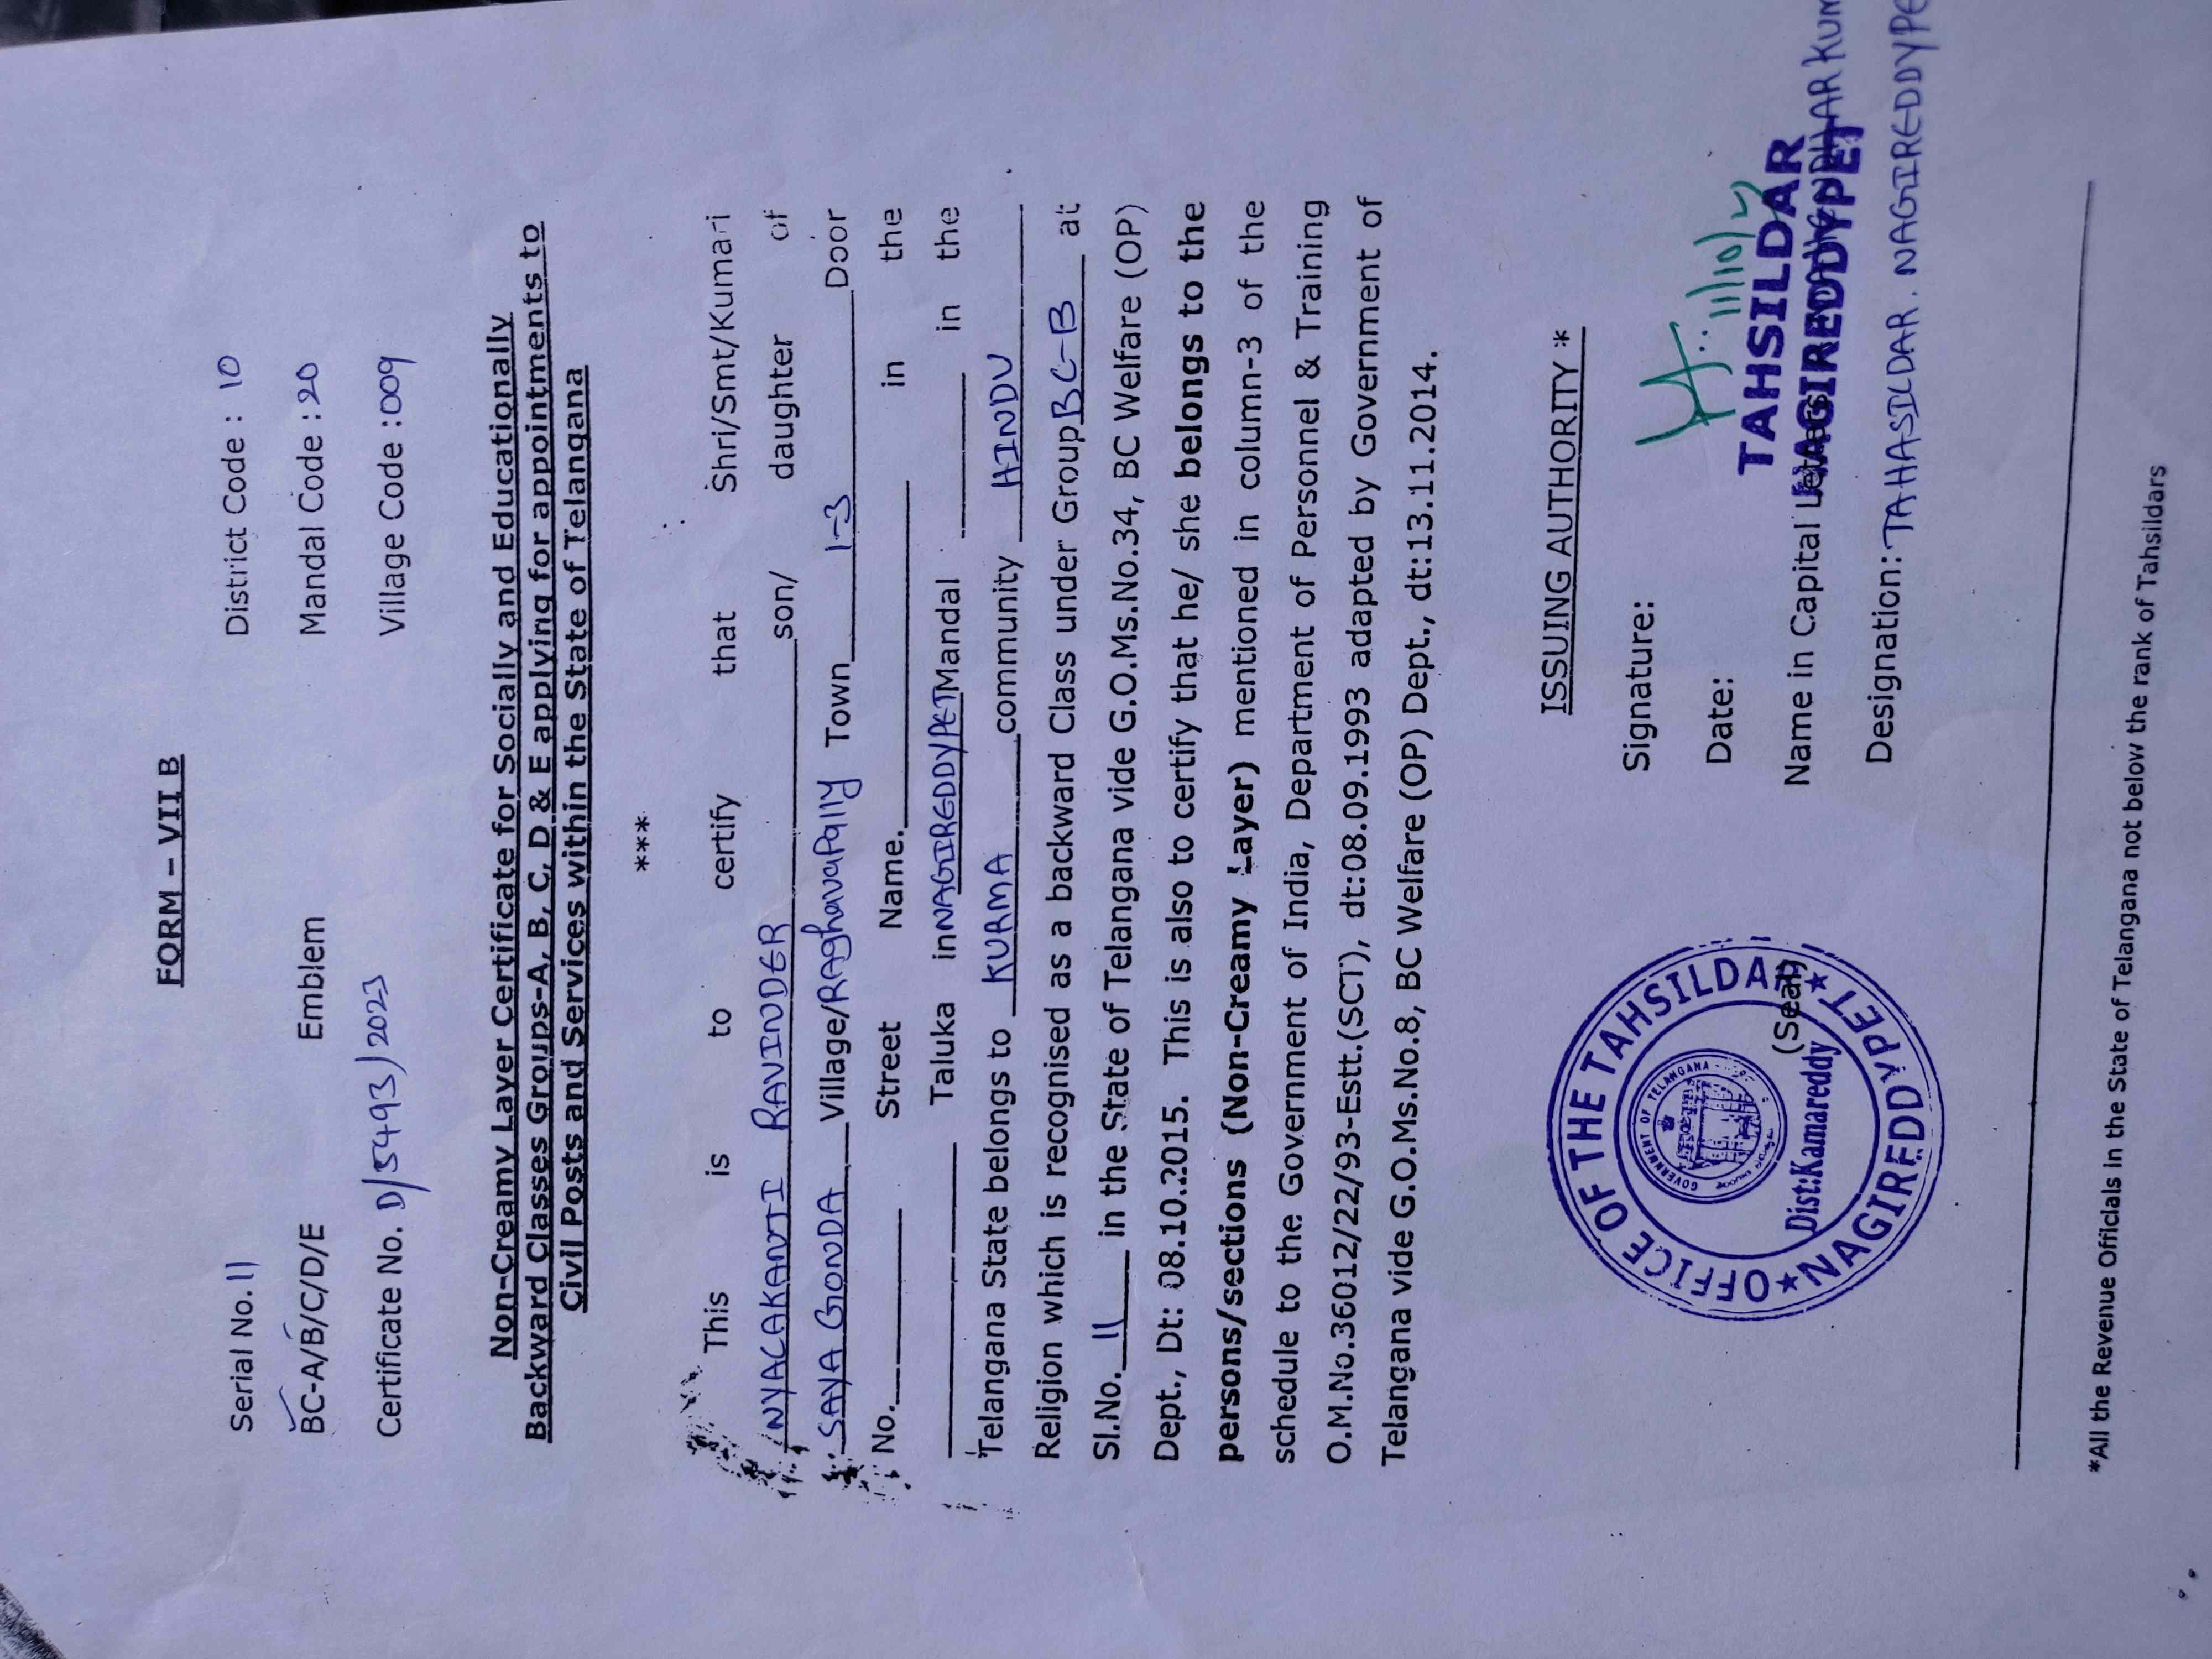 FORM – VII B
Serial No. 11 District Code : 10
BC-A/B/C/D/E Emblem Mandal Code : 20
Certificate No. D/5493/2023 Village Code : 009
Non-Creamy Layer Certificate for Socially and Educationally
Backward Classes Groups-A, B, C, D & E applying for appointments to
Civil Posts and Services within the State of Telangana
***
This is to certify that Shri/Smt/Kumari
NYACAKANTI RAVINDER son/ daughter of
SAYA GONDA Village/RAghavapally Town 1-3 Door
No. Street Name. in the
Taluka in NAGIREDDYPET Mandal in the
Telangana State belongs to KURMA community HINDU
Religion which is recognised as a backward Class under Group BC-B at
Sl.No. 11 in the State of Telangana vide G.O.Ms.No.34, BC Welfare (OP)
Dept., Dt: 08.10.2015. This is also to certify that he/ she belongs to the
persons/sections (Non-Creamy Layer) mentioned in column-3 of the
schedule to the Government of India, Department of Personnel & Training
O.M.No.36012/22/93-Estt.(SCT), dt:08.09.1993 adapted by Government of
Telangana vide G.O.Ms.No.8, BC Welfare (OP) Dept., dt:13.11.2014.
ISSUING AUTHORITY *
Signature:
Date: 11/10/
TAHSILDAR
Name in Capital Letters
NAGIREDDYPET
Designation: TAHASILDAR. NAGIREDDYPE
OFFICE OF THE TAHSILDA
NAGIREDDYPET
GOVERNMENT OF TELANGANA
Dist:Kamareddy
(Seal)
*All the Revenue Officials in the State of Telangana not below the rank of Tahsildars